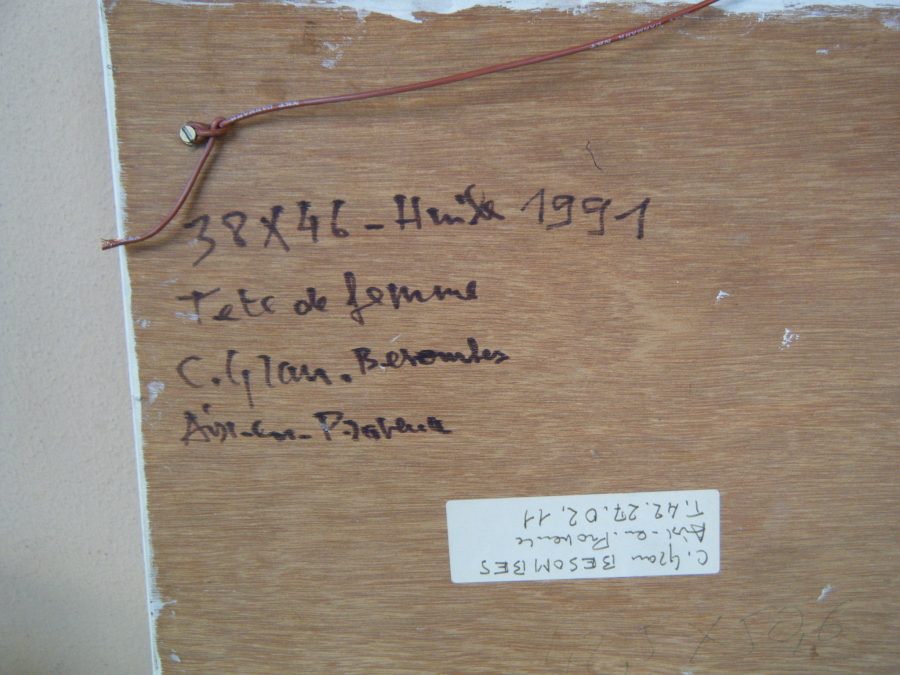 38X46 - Huile 1991
Tete de femme
C. Gran. Besombes
Aix-en-Provence
C. Gran BESOMBES
Aix-en-Provence
T.42.27.02.11